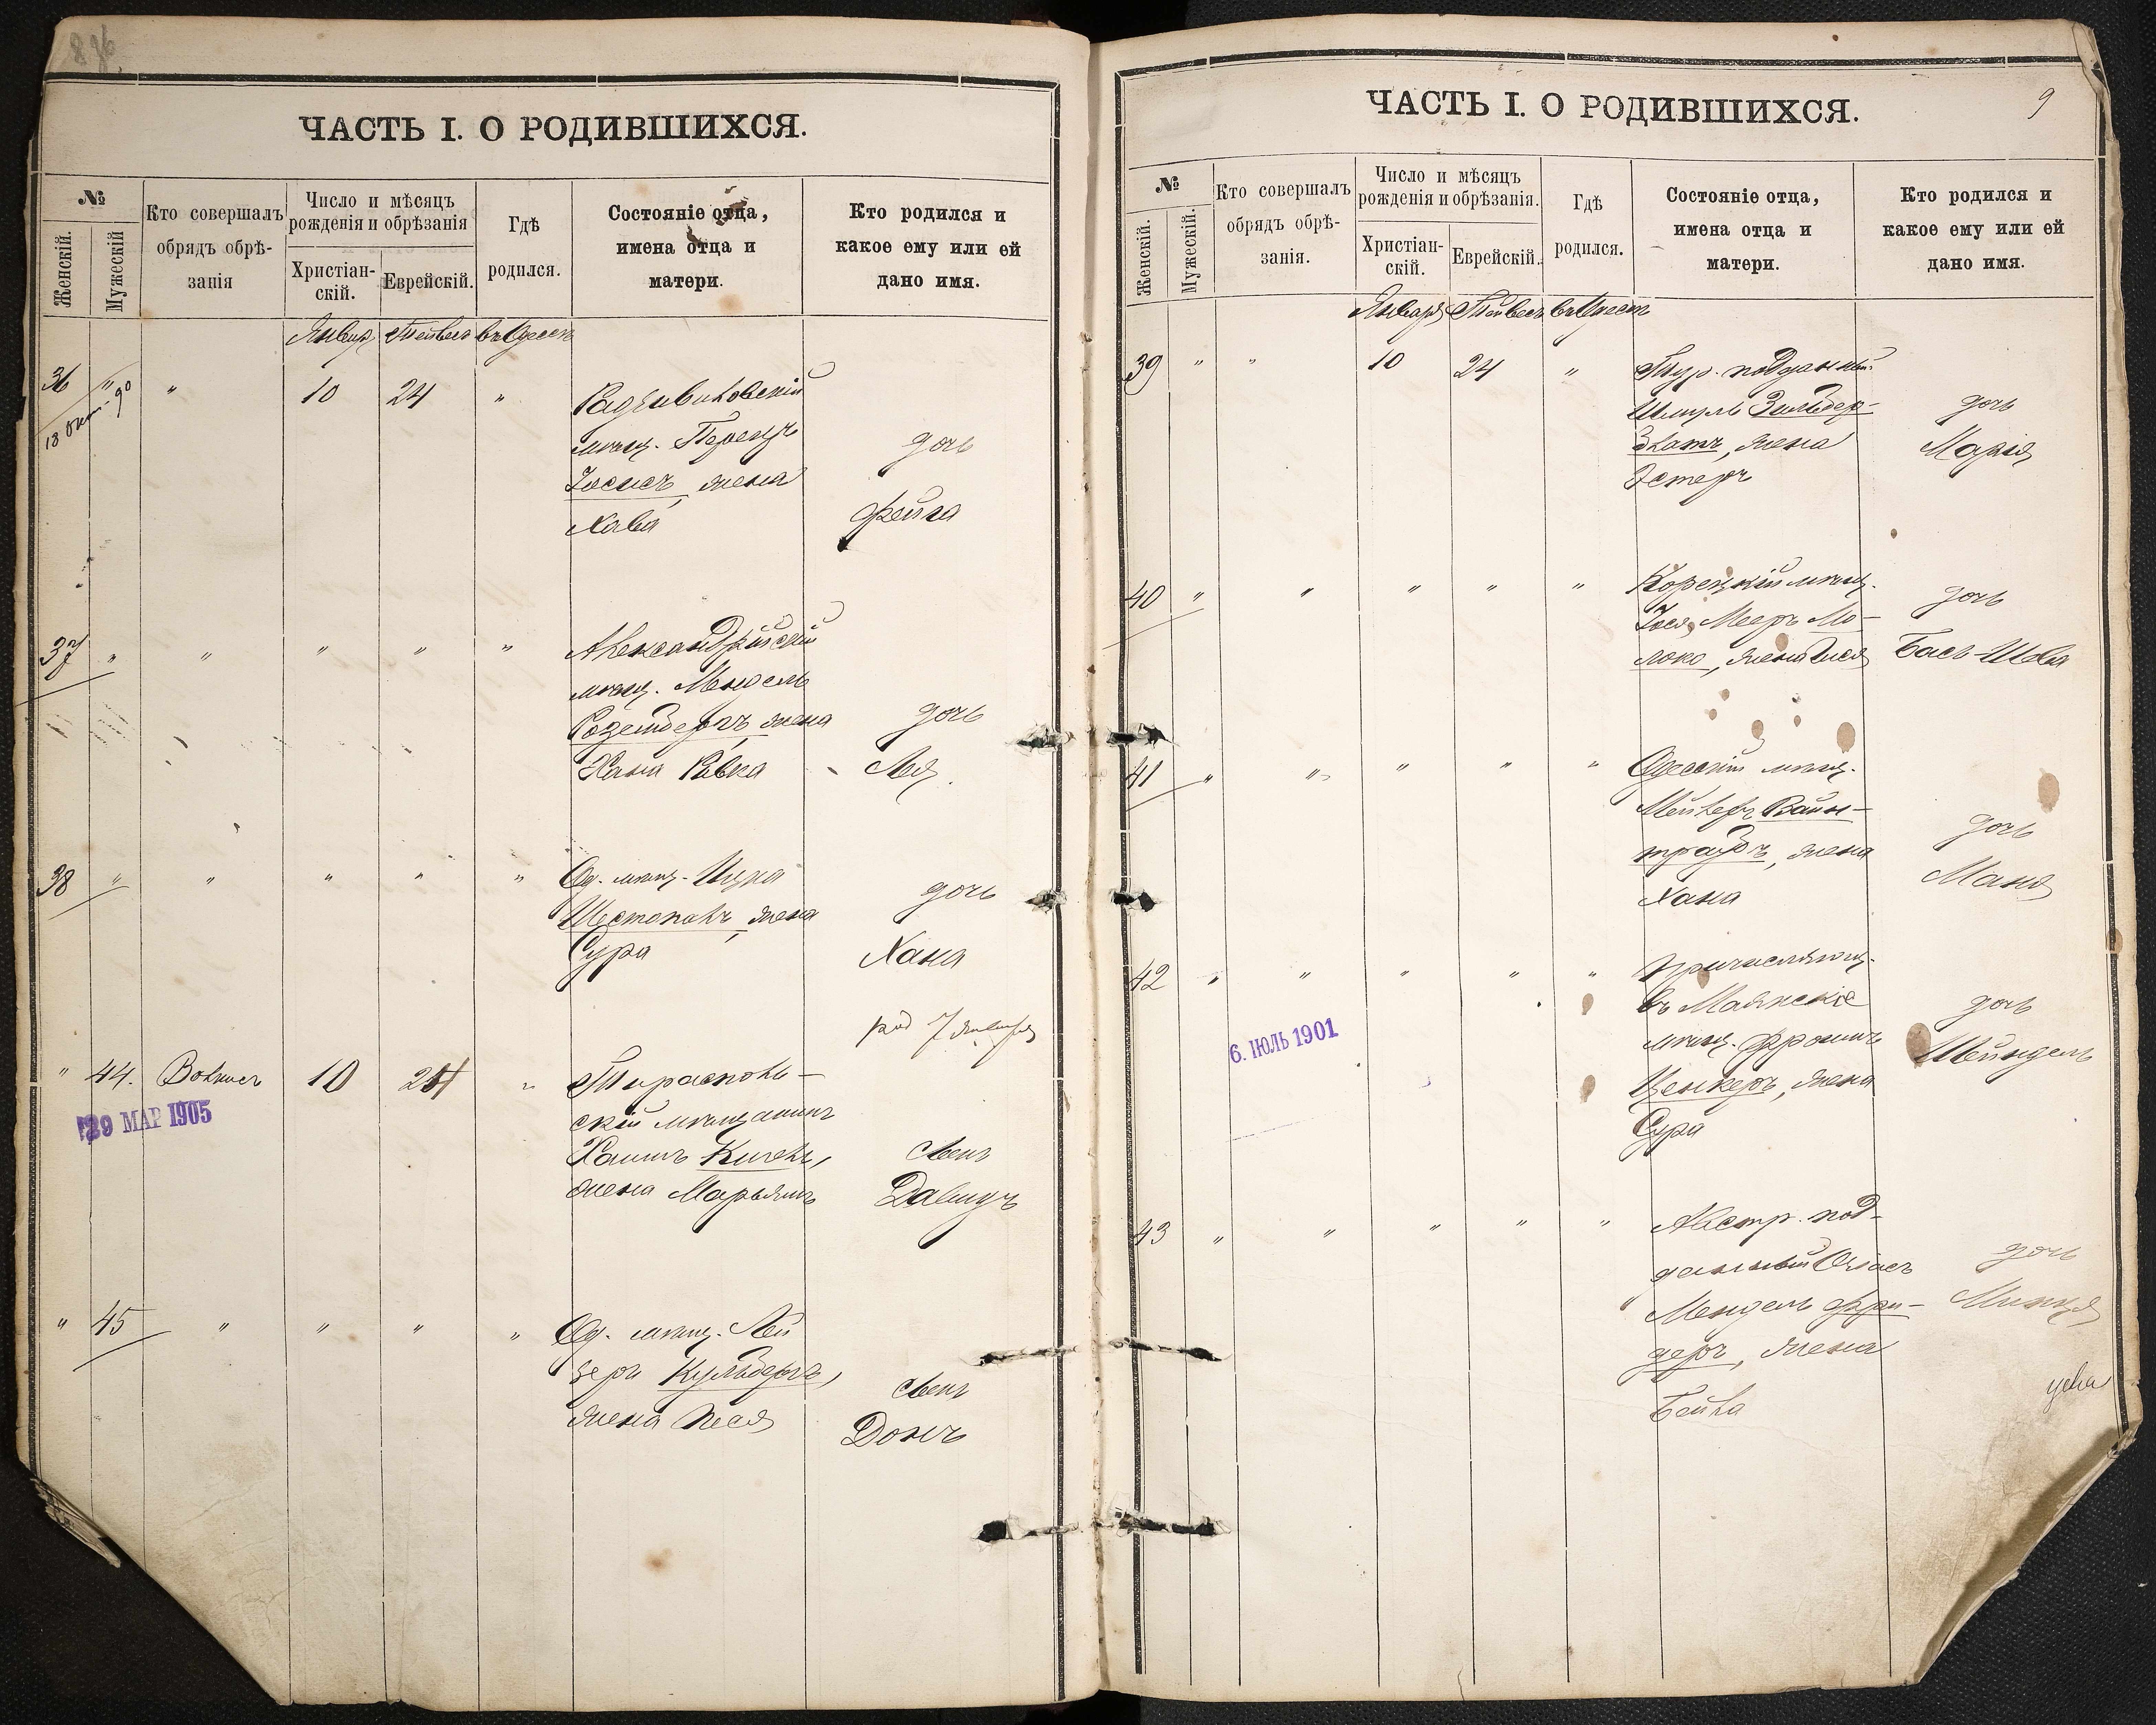 ЧАСТЬ I. О РОДИВШИХСЯ.
№
Женскій.
Мужескій
Кто совершалъ
обрядъ обрѣ-
занія
Число и мѣсяцъ
рожденія и обрѣзанія
Христіан-
скій.
Еврейскій.
Гдѣ
родился.
Состояніе отца,
имена отца и
матери.
Кто родился и
какое ему или ей
дано имя.
Январ. Тейвесъ въ Одессѣ
36 " " 10 24 "
18 Окт. 90
Радзивиловскій
мѣщ. Перецъ
жена
Хава
дочь
Фейга
37 " " " " "
Александрійскій
мѣщ. Мендель
Розенбергъ, жена
Хана Ривка
дочь
Лея.
38 " " " " "
Од. мѣщ. Ицка
Шестопалъ, жена
Сура
дочь
Хана
род 7 января
" 44. 10 24 "
29 МАР 1905
Тирасполь-
скій мѣщанинъ
Хаимъ
жена Марьямъ
сынъ
Давидъ
" 45 " " " "
Од. мѣщ. Лей
зеръ
жена Песя
сынъ
Донъ
ЧАСТЬ I. О РОДИВШИХСЯ.
9
№
Женскій.
Мужескій.
Кто совершалъ
обрядъ обрѣ-
занія.
Число и мѣсяцъ
рожденія и обрѣзанія.
Христіан-
скій.
Еврейскій.
Гдѣ
родился.
Состояніе отца,
имена отца и
матери.
Кто родился и
какое ему или ей
дано имя.
Января Тейвесъ въ Одессѣ
39 " " 10 24 "
Тур. подданный
Шмуль Зильбер-
жена
Эстеръ
дочь
Марія
40 " " " " "
Корецкій мѣщ.
Іося Мееръ Мо-
локо, жена
дочь
Бася-Шева
41 " " " " "
Одесскій мѣщ.
Мейлехъ Вайн-
траубъ, жена
Хана
дочь
Маня
42 " " " " "
6. ІЮЛЬ 1901
Причисляющ.
въ Маякскіе
мѣщ. Фроимъ
Ценкеръ, жена
Сура
дочь
Шейндель
43 " " " " "
Австр. под-
данный
Мендель Фри-
деръ, жена
Бейла
дочь
Минця